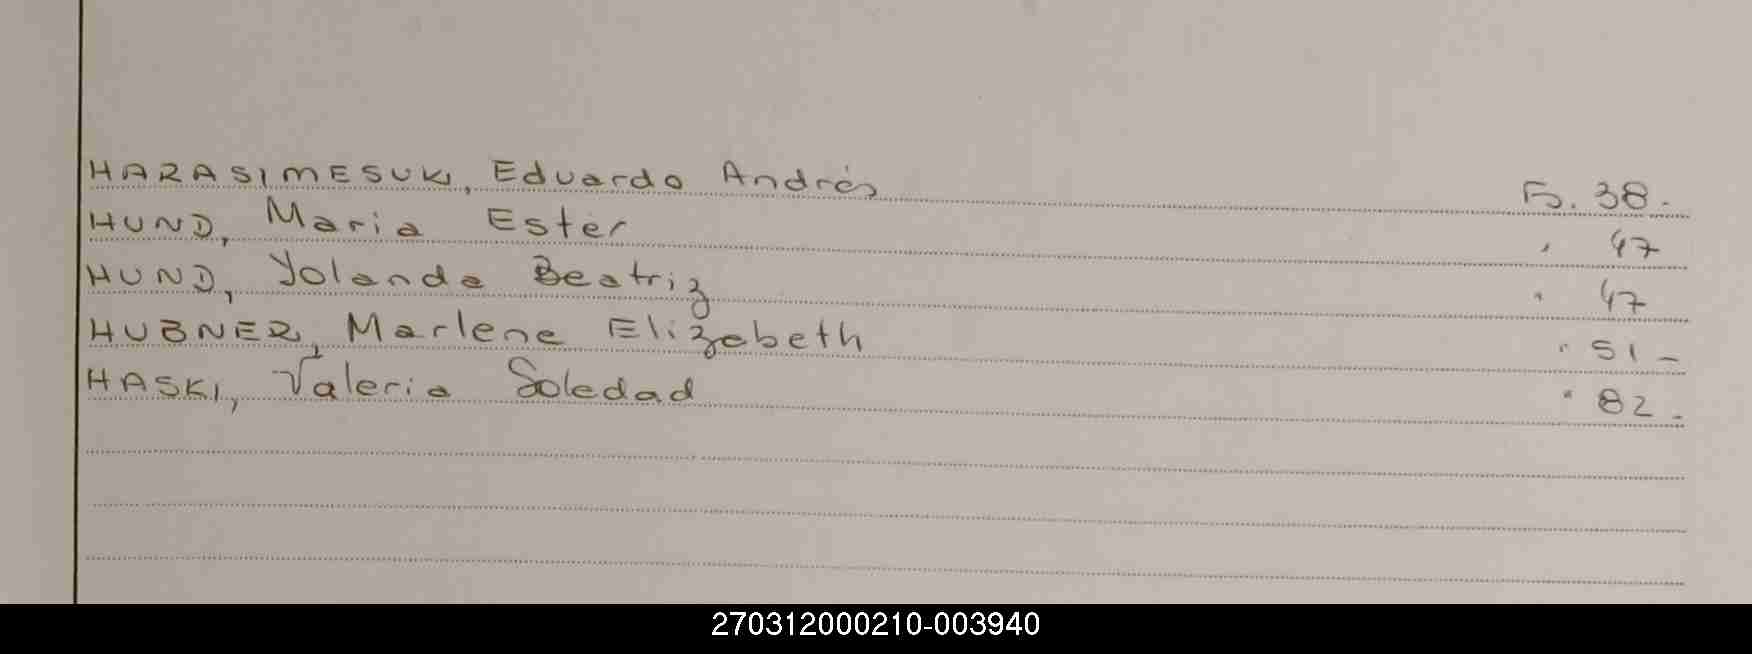 HARASIMESUKI, Eduardo Andrés Fs. 38.
HUND, Maria Ester " 47
HUND, Yolanda Beatriz " 47
HUBNER, Marlene Elizabeth " 51 -
HASKI, Valeria Soledad " 82.
270312000210-003940